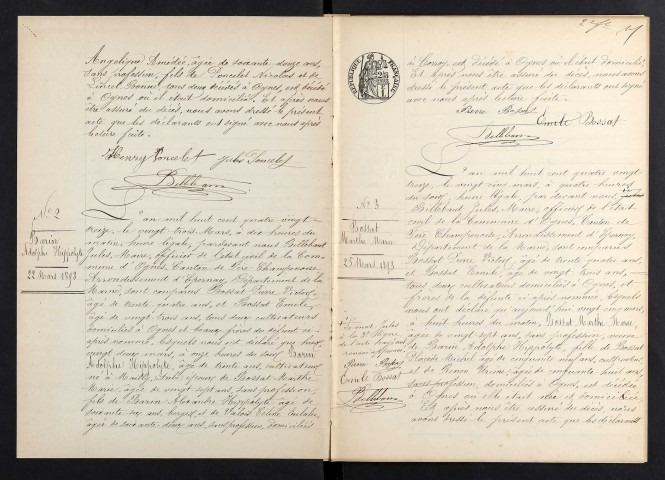 Angélique Amédée, âgée de soixante douze ans,
sans profession, fils de Poncelet Nicolas et de
tous deux décédés à Ognes, est décédé
à Ognes où il était domicilié. Et après nous
être assuré du décès, nous avons dressé le présent
acte que les déclarants ont signé avec nous après
lecture faite.
Henry Poncelet Jules Poncelet
Billebaux
N° 2
Barin
Adolphe Hippolyte
22 Mars 1893
L'an mil huit cent quatre vingt-
treize, le vingt trois Mars, à dix heures du
matin, heure légale, pardevant nous Billebaux
Jules, Maire, officier de l'état civil de la Com-
mune d'Ognes, Canton de Fère Champenoise
Arrondissement d'Epernay, Département de la
Marne, sont comparus Bossat Pierre Victor,
âgé de trente quatre ans, et Bossat Emile,
âgé de vingt trois ans, tous deux cultivateurs
domiciliés à Ognes et beaux frères du défunt ci-
après nommé, lesquels nous ont déclaré que hier
vingt deux mars, à onze heures du soir Barin
Adolphe Hippolyte, âgé de trente ans, cultivateur
né à époux de Bossat Marthe
Marie, âgée de vingt sept ans, sans profession,
fils de Barin Alexandre Hippolyte âgé de
soixante six ans, berger, et de Valois
âgée de soixante deux ans, sans profession, domiciliés
à est décédé à Ognes où il était domicilié
Et après nous être assuré du décès, nous avons
dressé le présent acte que les déclarants ont signé
avec nous après lecture faite.
Pierre Bossat
Emile Bossat
Billebaux
N° 3
Bossat
Marthe Marie
25 Mars 1893
L'an mil huit cent quatre vingt
treize, le vingt cinq mars, à quatre heures
du soir, heure légale, par devant nous
Billebaux Jules, Maire, officier de l'Etat
civil de la Commune d'Ognes, Canton de
Fère Champenoise, Arrondissement d'Epernay,
Département de la Marne, sont comparus
Bossat Pierre Victor, âgé de trente quatre ans,
et Bossat Emile, âgé de vingt trois ans,
tous deux cultivateurs domiciliés à Ognes, et
frères de la défunte ci-après nommée, lesquels
nous ont déclaré qu'aujourd'hui vingt cinq
à huit heures du matin, Bossat Marthe Marie,
âgée de vingt sept ans, sans profession, veuve
de Barin Adolphe Hippolyte, fille de Bossat
âgé de cinquante neuf ans, cultivateur
et de âgée de cinquante huit ans,
sans profession, domiciliés à Ognes, est décédée
à Ognes où elle était domiciliée
Et après nous être assuré du décès, nous
avons dressé le présent acte que les déclarants
Jules
à la 3e ligne
approuvé
Pierre Bossat
Emile Bossat
Billebaux
RÉPUBLIQUE FRANÇAISE